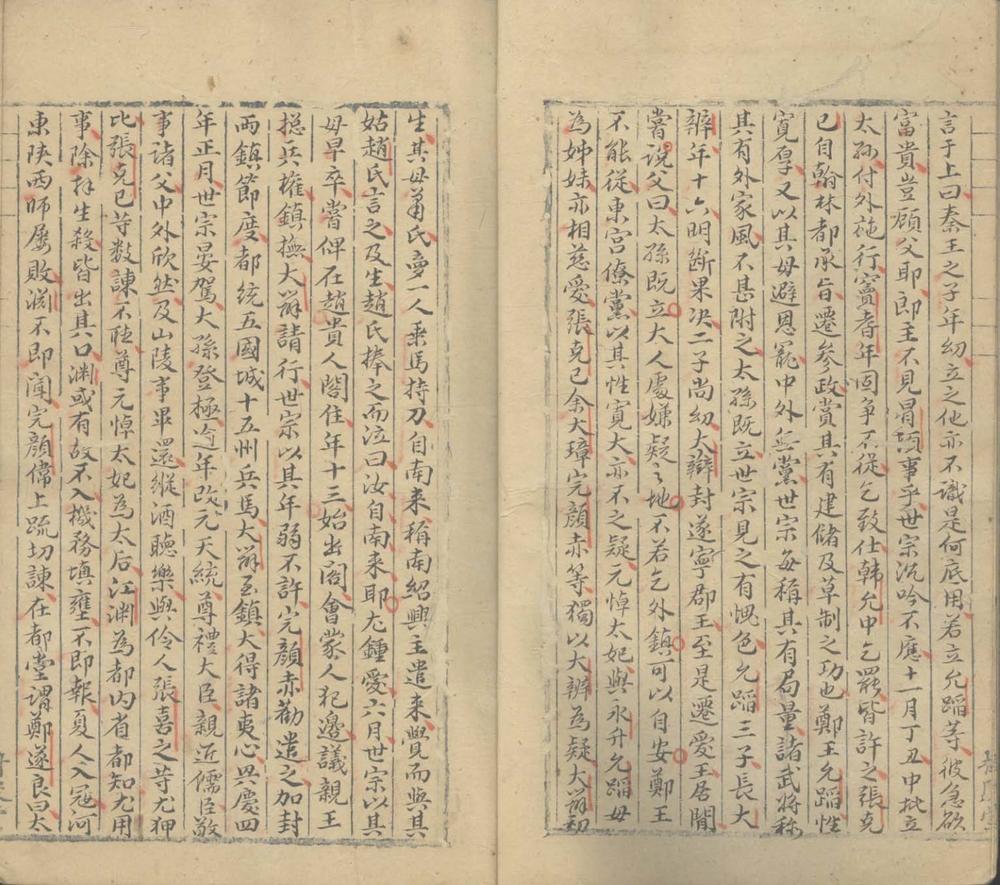 言于上曰秦王之子年幼立之他亦不識是何底用若立允蹈等彼急欲
富貴豈顧父耶郎主不見冒頓事乎世宗沉吟不應十一月丁丑中批立
太孫付外施行竇耆年固爭不從乞致仕韓允中乞罷皆許之張克
已自翰林都承旨遷參政賞其有建儲及草制之功也鄭王允蹈性
寬厚又以其母避恩寵中外無黨世宗每稱其有局量諸武將稱
其有外家風不甚附之太孫既立世宗見之有愧色允蹈三子長大
辨年十六明断果决二子尚幼大辯封遂寧郡王至是遷愛王居閒
嘗說父曰太孫既立大人處嫌疑之地不若乞外鎮可以自安鄭王
不能從東宮僚黨以其性寬大亦不之疑元悼太妃與永升允蹈母
為姊妹亦相慈愛張克已余大璋完顔赤等獨以大辨為疑大辯初
生其母蕭氏夢一人乘馬持刀自南来稱南紹興主遣来覺而與其
姑趙氏言之及生趙氏捧之而泣曰汝自南来耶尤鍾愛六月世宗以其
母早卒嘗俾在趙貴人閤住年十三始出閤會蒙人犯邊議親王
捴兵權鎮撫大辯請行世宗以其年弱不許完顔赤勸遣之加封
兩鎮節度都統五國城十五州兵馬大辯至鎮大得諸夷心興慶四
年正月世宗晏駕大孫登極逾年改元天統尊禮大臣親近儒臣敬
事諸父中外欣然及山陵事畢還縱酒聽樂與伶人張喜之等尤狎
比張克已等数諫不聽尊元悼太妃為太后江渊為都内省都知尤用
事除拜生殺皆出其口渊或有故不入機務填壅不即報夏人入冦河
東陕西師屡敗渊不即聞完顔偉上疏切諫在都堂謂鄭遂良曰太